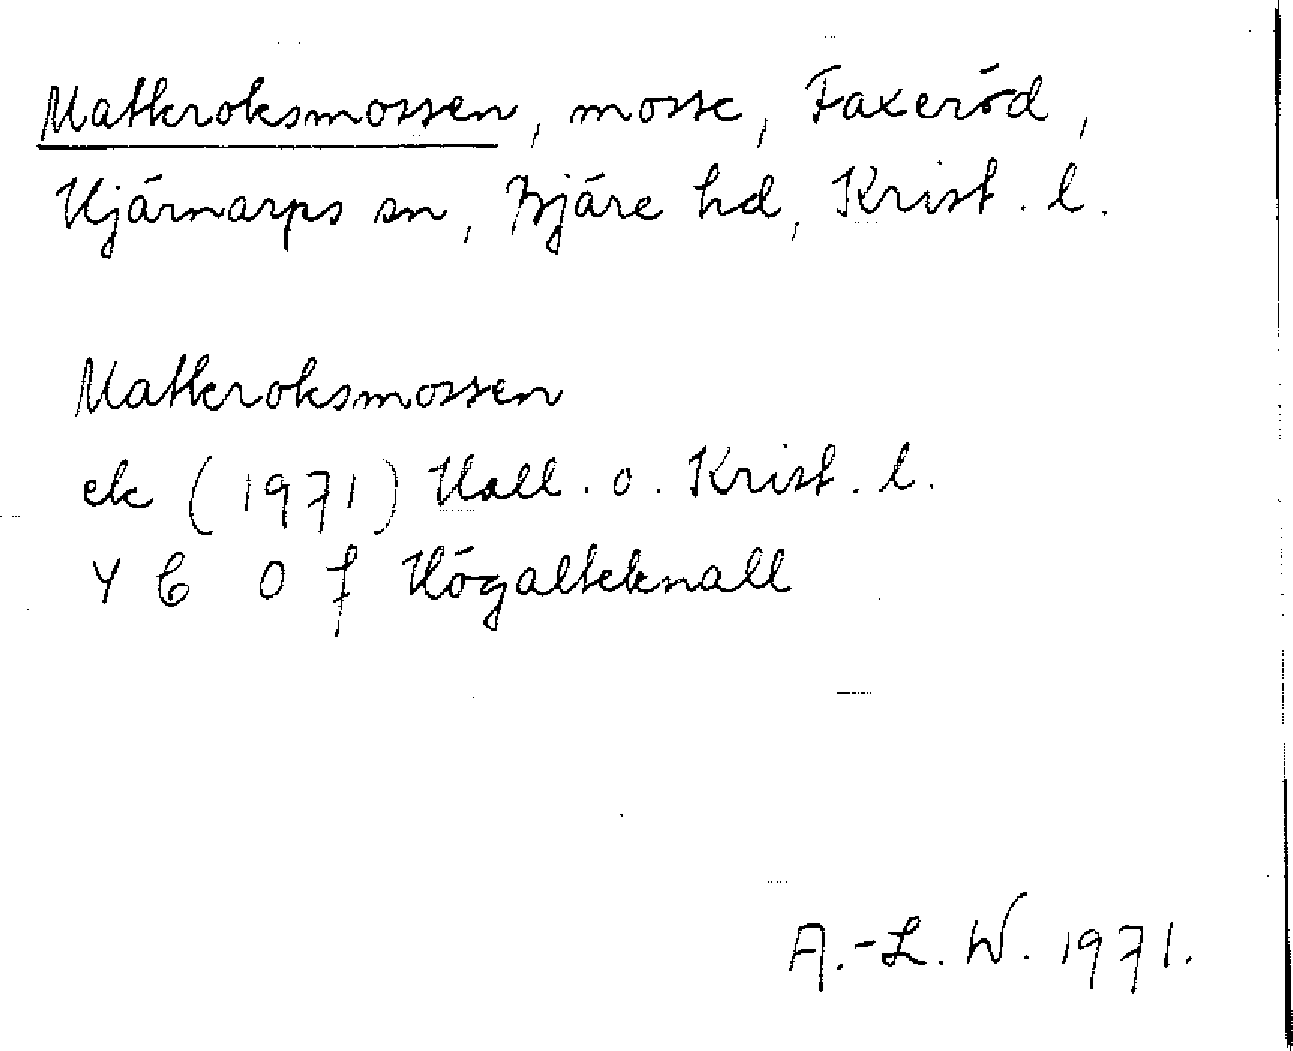 Matkroksmossen, mosse, Faxeröd,
Hjärnarps sn, Bjäre hd, Krist. l.
Matkroksmossen
ek (1971) Hall. o. Krist. l.
4 C 0 f Högalteknall
A.-L. W. 1971.